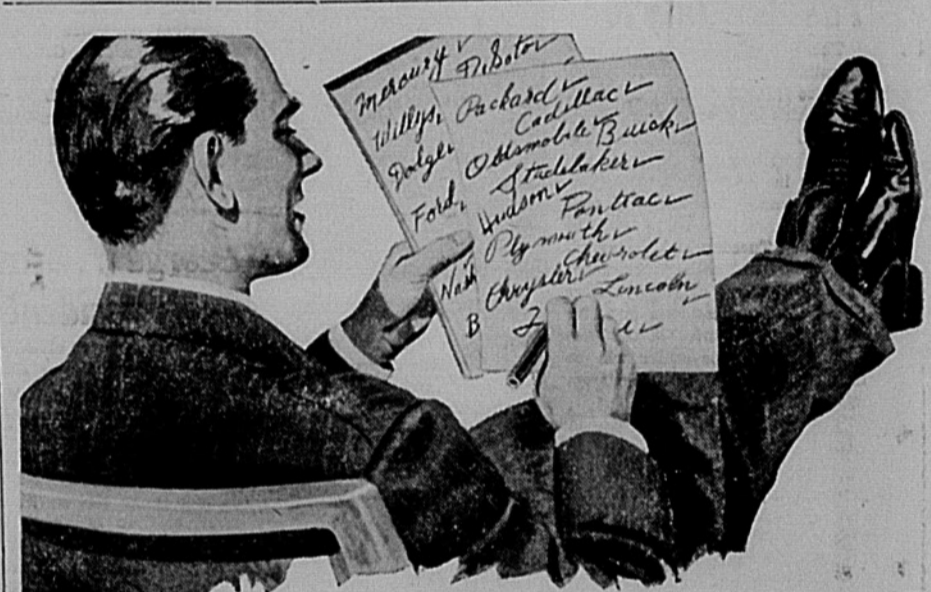 Mercury ✓
DeSoto ✓
Willys
Dodge
Ford
Nash
B
Packard ✓
Cadillac ✓
Oldsmobile ✓
Buick ✓
Studebaker ✓
Hudson ✓
Pontiac ✓
Plymouth ✓
Chevrolet ✓
Chrysler ✓
Lincoln ✓